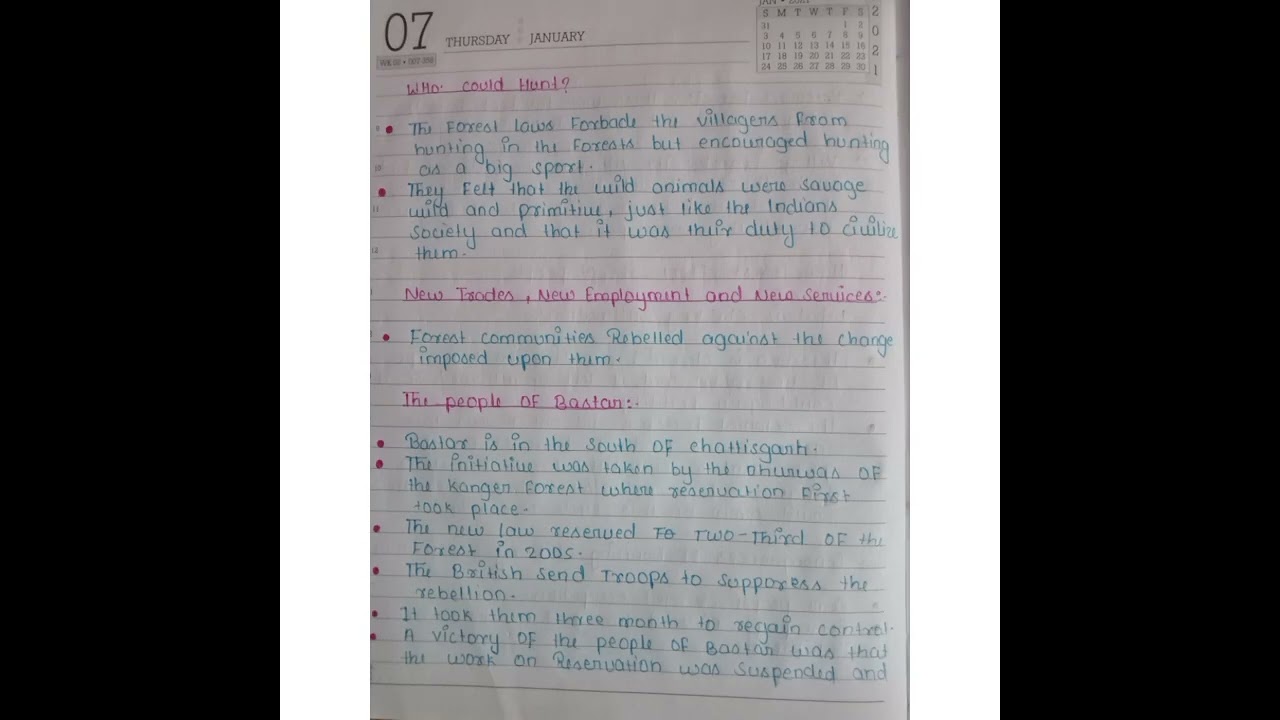 07 THURSDAY JANUARY
WK 02 • 007-358
JAN • 2021
S M T W T F S
31 1 2
3 4 5 6 7 8 9
10 11 12 13 14 15 16
17 18 19 20 21 22 23
24 25 26 27 28 29 30
2021
Who could Hunt?
• The Forest laws Forbade the villagers from
hunting in the Forests but encouraged hunting
as a big sport.
• They Felt that the wild animals were savage
wild and primitive, just like the Indians
society and that it was their duty to civilize
them.
New Trades, New Employment and New Services:-
• Forest communities Rebelled against the change
imposed upon them.
The people OF Bastar:-
• Bastar is in the south OF chattisgarh.
• The initiative was taken by the Dhurwas OF
the Kanger Forest where reservation First
took place.
• The new law reserved To TWO-Third OF the
Forest in 2005.
• The British send Troops to supporess the
rebellion.
• It took them three month to regain control.
• A victory OF the people OF Bastar was that
the work on Reservation was suspended and